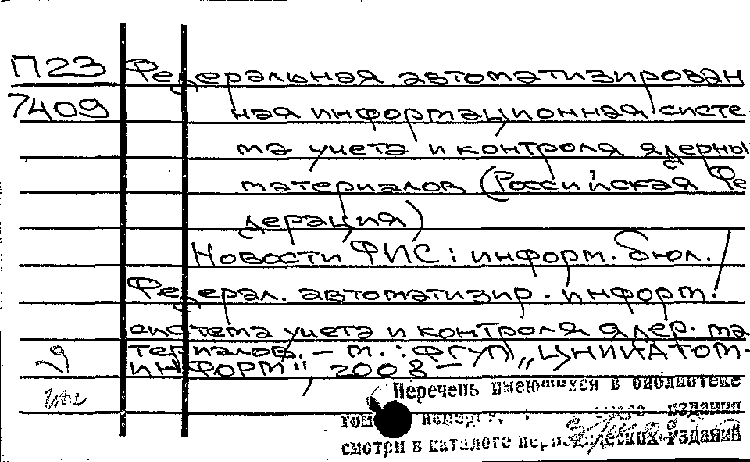 П23 Федеральная автоматизирован
7409 ная информационная систе
ма учета и контроля ядерны
материалов (Российская Фе
дерация)
Новости ФИС: информ. бюл. /
Федерал. автоматизир. информ.
система учета и контроля ядер. ма
териалов. - М.: ФГУП „ЦНИИАТОМ-
ИНФОРМ", 2008 -
Перечень имеющихся в библиотеке
издания
смотри в каталоге изданий